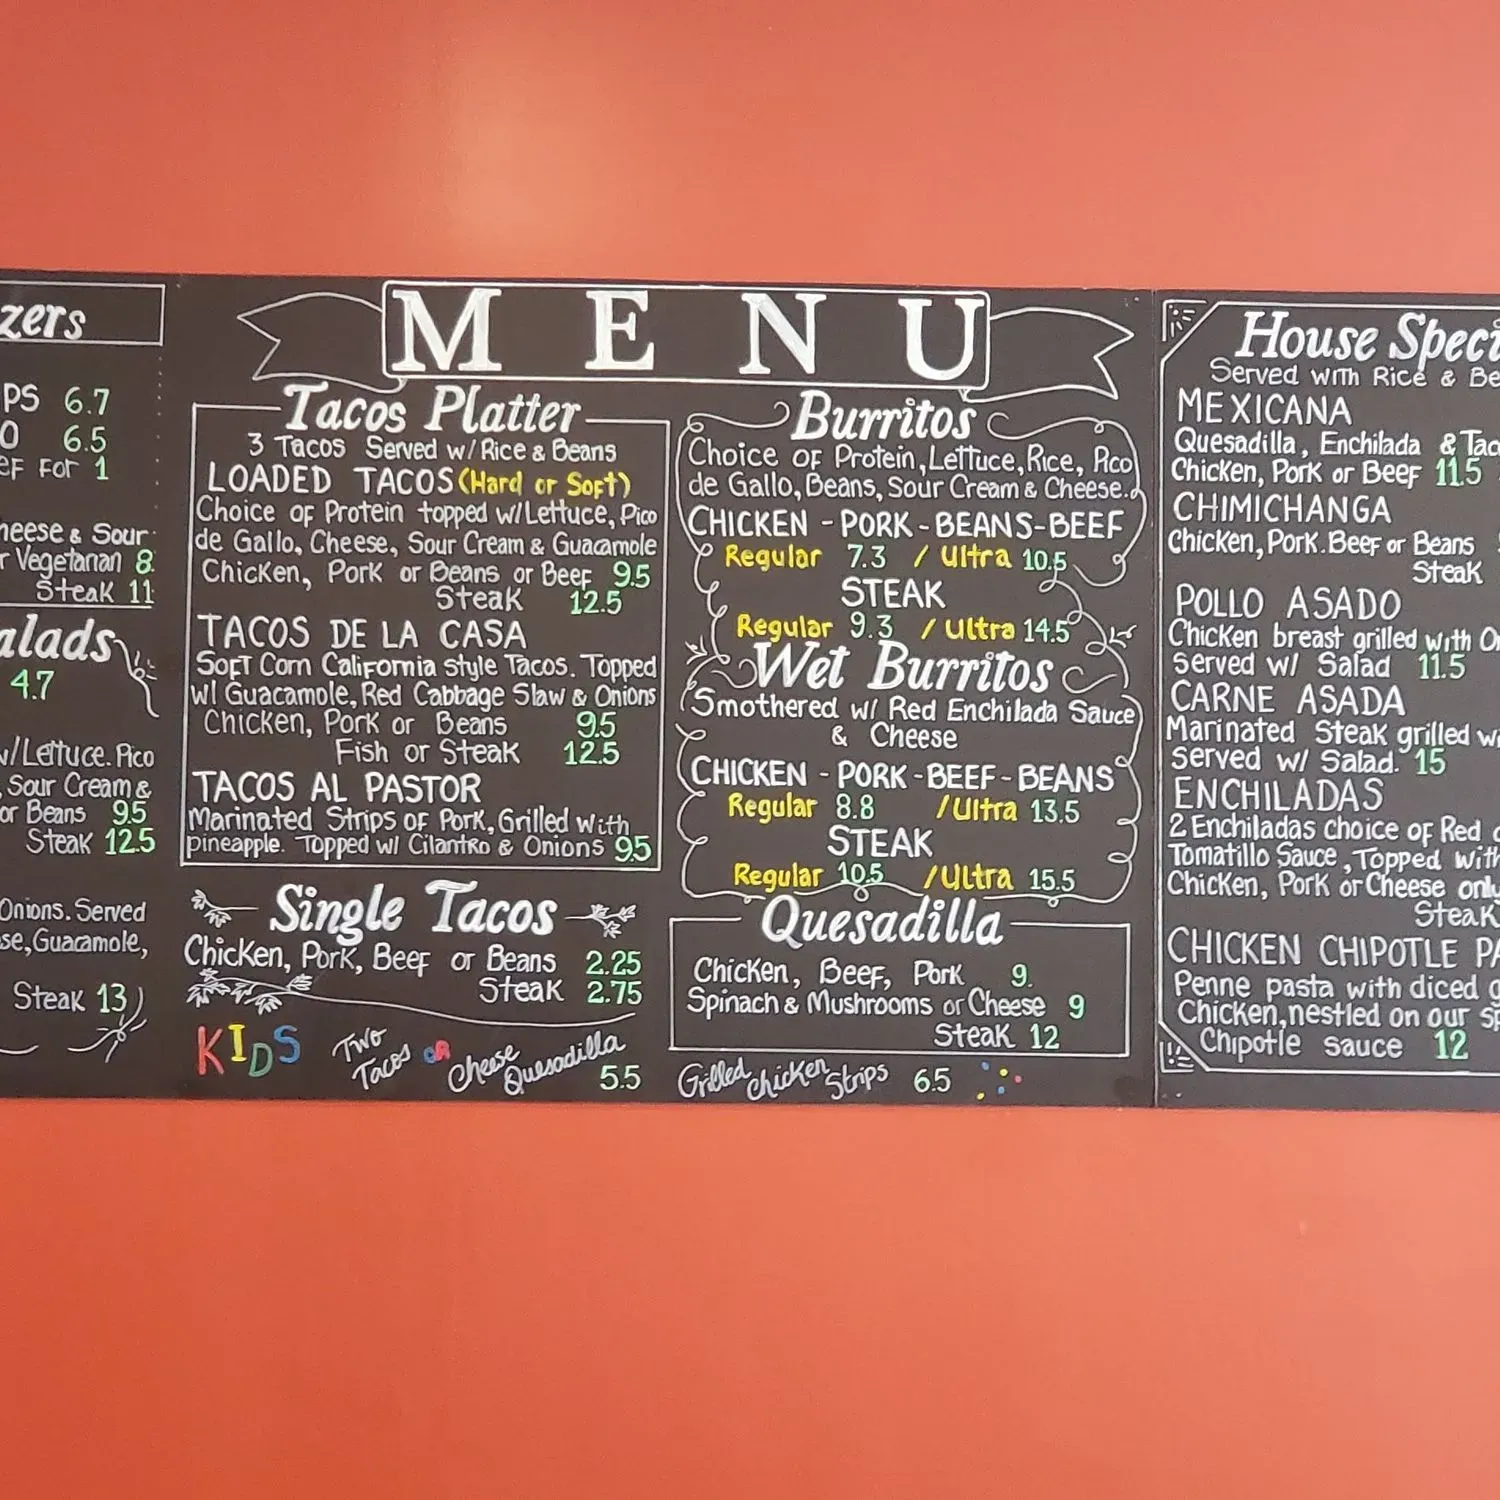 MENU
zers
PS 6.7
O 6.5
EF FOR 1
heese & Sour
r Vegetarian 8
Steak 11
alads
4.7
w/Lettuce. Pico
, Sour Cream &
or Beans 9.5
Steak 12.5
Onions. Served
se, Guacamole,
Steak 13
Tacos Platter
3 Tacos Served w/ Rice & Beans
LOADED TACOS (Hard or Soft)
Choice of Protein topped w/Lettuce, Pico
de Gallo, Cheese, Sour Cream & Guacamole
Chicken, Pork or Beans or Beef 9.5
Steak 12.5
TACOS DE LA CASA
Soft Corn California style Tacos. Topped
w/ Guacamole, Red Cabbage Slaw & Onions
Chicken, Pork or Beans 9.5
Fish or Steak 12.5
TACOS AL PASTOR
Marinated Strips of Pork, Grilled with
pineapple. Topped w/ Cilantro & Onions 9.5
Single Tacos
Chicken, Pork, Beef or Beans 2.25
Steak 2.75
KIDS Two Tacos OR Cheese Quesadilla 5.5
Grilled chicken Strips 6.5
Burritos
Choice of Protein, Lettuce, Rice, Pico
de Gallo, Beans, Sour Cream & Cheese.
CHICKEN - PORK - BEANS - BEEF
Regular 7.3 / Ultra 10.5
STEAK
Regular 9.3 / Ultra 14.5
Wet Burritos
Smothered w/ Red Enchilada Sauce
& Cheese
CHICKEN - PORK - BEEF - BEANS
Regular 8.8 / Ultra 13.5
STEAK
Regular 10.5 / Ultra 15.5
Quesadilla
Chicken, Beef, Pork 9.
Spinach & Mushrooms or Cheese 9
Steak 12
House Speci
Served with Rice & Be
MEXICANA
Quesadilla, Enchilada & Tac
Chicken, Pork or Beef 11.5
CHIMICHANGA
Chicken, Pork. Beef or Beans
Steak
POLLO ASADO
Chicken breast grilled with On
Served w/ Salad 11.5
CARNE ASADA
Marinated Steak grilled wi
Served w/ Salad. 15
ENCHILADAS
2 Enchiladas choice of Red o
Tomatillo Sauce, Topped with
Chicken, Pork or Cheese only
Steak
CHICKEN CHIPOTLE PA
Penne pasta with diced g
Chicken, nestled on our sp
Chipotle sauce 12